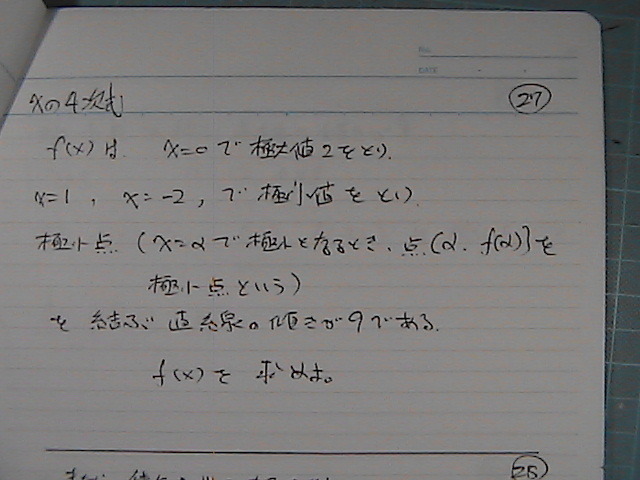 No.
DATE
27
xの4次式
f(x)は x=0で極大値2をとり、
x=1, x=-2, で極小値をとり
極小点 (x=αで極小となるとき、点(α, f(α))を
極小点という)
を結ぶ直線の傾きが9である.
f(x)を求めよ。
25